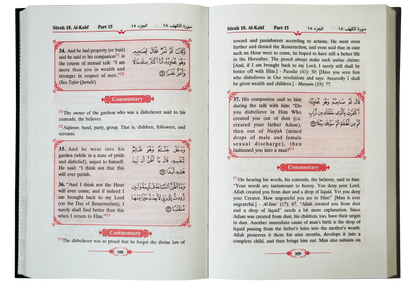 Sûrah 18. Al-Kahf Part 15 الجزء ١٥ سورة الكهف ١٨
34. And he had property (or fruit)
and he said to his companion[1] in
the course of mutual talk: "I am
more than you in wealth and
stronger in respect of men."[2]
(See Tafsir Qurtubi)
Commentary
[1] The owner of the gardens who was a disbeliever said to his
comrade, the believer.
[2] Nafarun: band, party, group. That is, children, followers, and
servants.
35. And he went into his
garden (while in a state of pride
and disbelief), unjust to himself.
He said: "I think not that this
will ever perish.
36. "And I think not the Hour
will ever come, and if indeed I
am brought back to my Lord
(on the Day of Resurrection), I
surely shall find better than this
when I return to Him."[1]
Commentary
[1] The disbeliever was so proud that he forgot the divine law of
308
Sûrah 18. Al-Kahf Part 15 الجزء ١٥ سورة الكهف ١٨
rescued and punishment according to actions. He went even
further and denied the Resurrection, and even said that in case
such an Hour were to come, he hoped to have still a better life
in the Hereafter. The proud always make such tall claims:
[And, if I am brought back to my Lord, I surely still shall be
better off with Him.] - Fussilat (41): 50; [Have you seen him
who disbelieves in Our revelations and says: Assuredly I shall
be given wealth and children.] - Maryam (19): 77.
37. His companion said to him
during the talk with him: "Do
you disbelieve in Him Who
created you out of dust (i.e.
created your father Adam),
then out of Nutfah (mixed
drops of male and female
sexual discharge), then
fashioned you into a man?[1]
Commentary
[1] On hearing his words, his comrade, the believer, said to him:
"Your words are tantamount to heresy. You deny your Lord.
Allah created you from dust and a drop of liquid. Yet you deny
your Creator. How ungrateful you are to Him!" [Man is ever
ungrateful.] - Al-Isra' (17): 67. "Allah created you from dust
and a drop of liquid" needs a bit more explanation. Since
Adam was created from dust, his children, too, have their origin
in dust. Another immediate cause of man's birth is the drop of
liquid passing from the father's loins into the mother's womb.
Allah preserves it there for nine months, develops it into a
complete child, and then brings him out. Man also subsists on
309